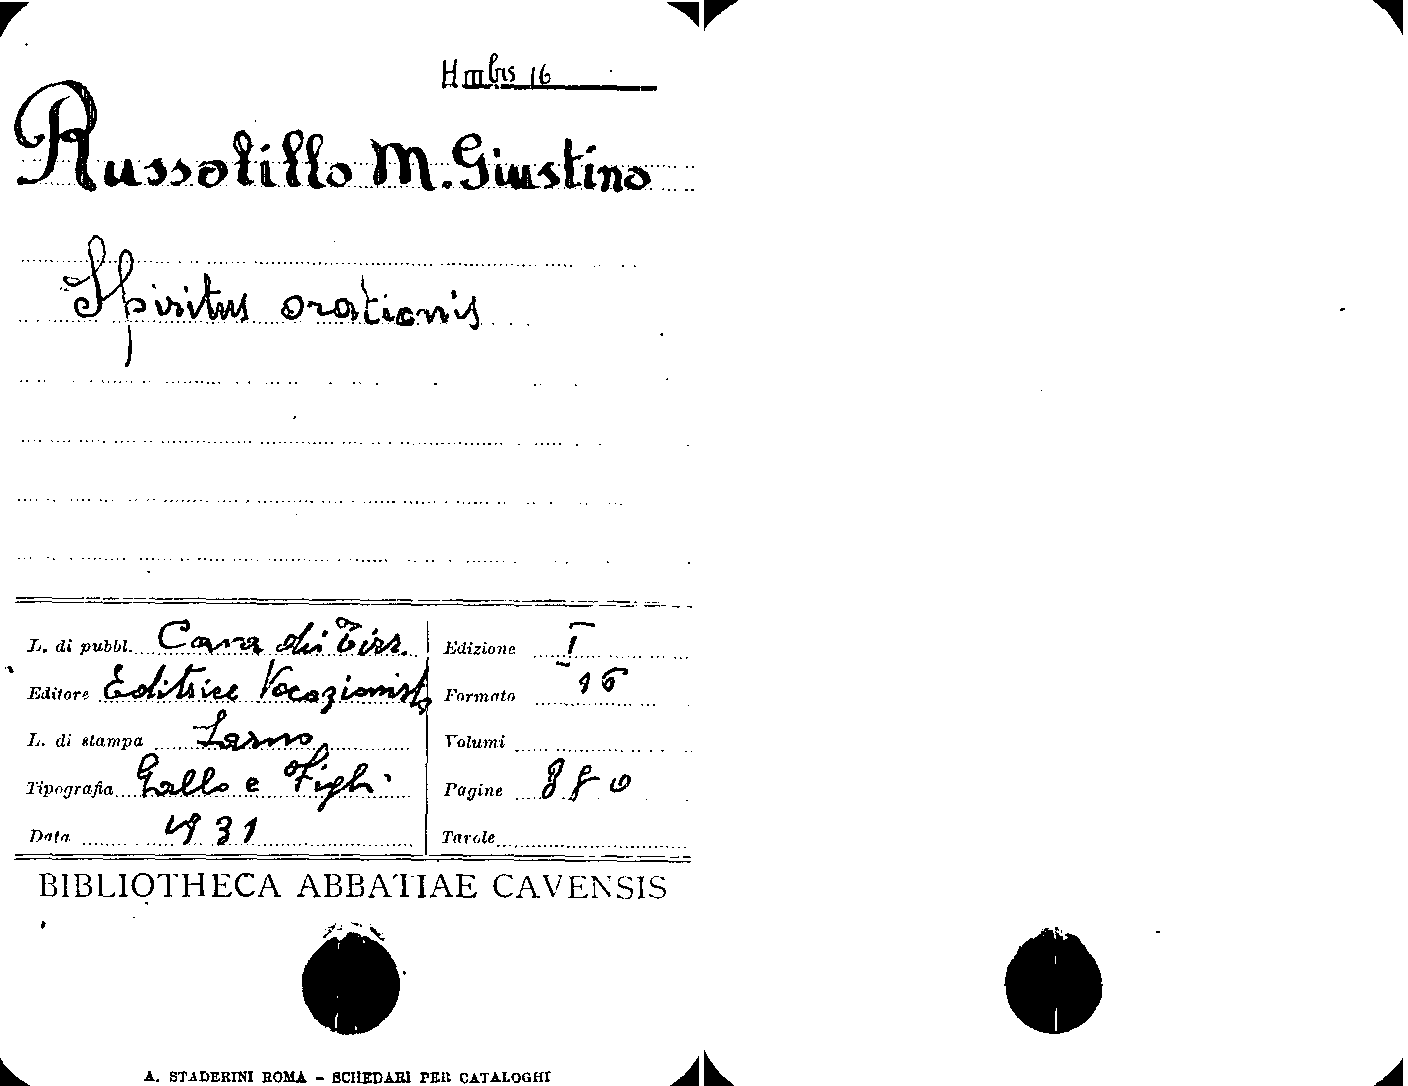 H III bis 16
Russolillo M. Giustino
Spiritus orationis
L. di pubbl. Cava dei Tirr.
Edizione I
Editore Editrice Vocazionista
Formato 16
L. di stampa Sarno
Volumi
Tipografia Gallo e Figli
Pagine 880
Data 1931
Tavole
BIBLIOTHECA ABBATIAE CAVENSIS
A. STADERINI ROMA - SCHEDARI PER CATALOGHI